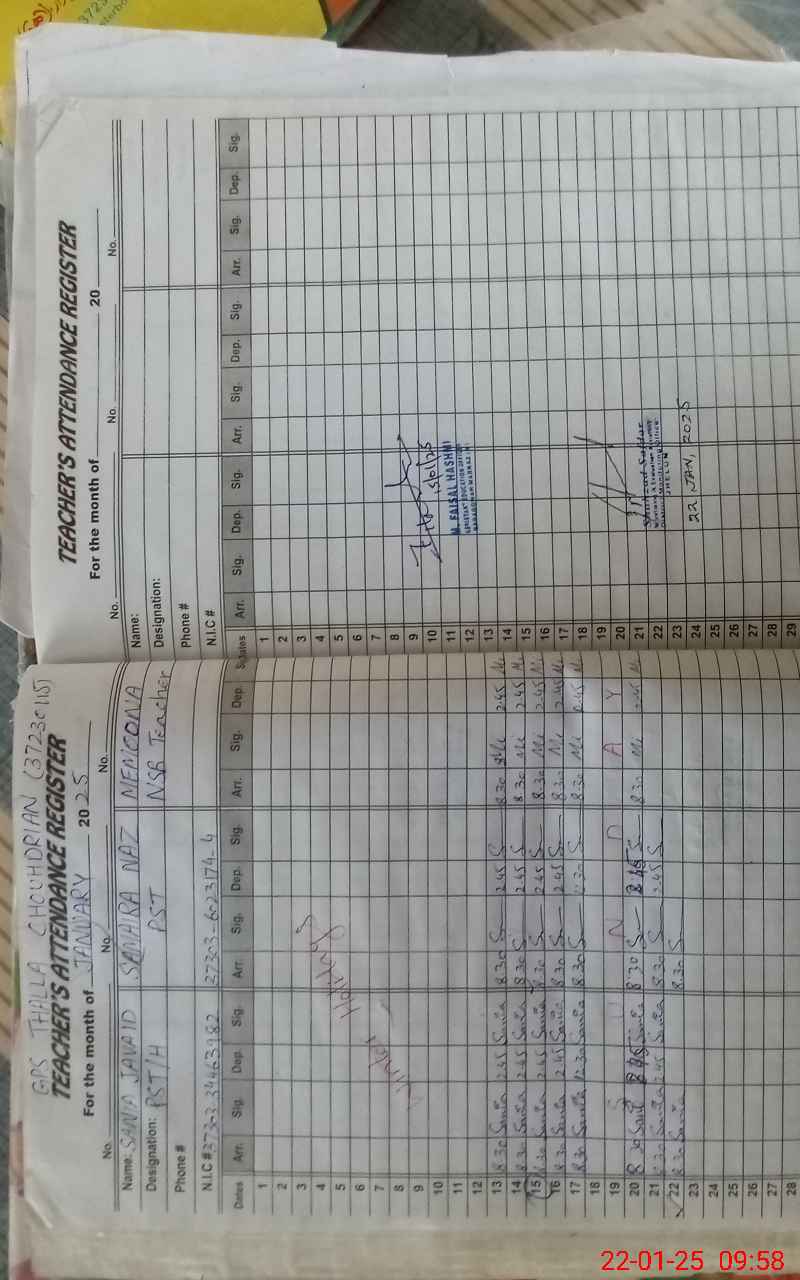 GPS THALLA CHOUHDRIAN (37230115)
TEACHER'S ATTENDANCE REGISTER
For the month of JANUARY 20 25
No. No. No.
Name: SANIA JAVAID SAMARA NAZ MEMOONA
Designation: PST/H PST NSB Teacher
Phone #
N.I.C #
Dates Arr. Sig. Dep. Sig. Arr. Sig. Dep. Sig. Arr. Sig. Dep. Sig.
1
2
3
4
5
6
7
8
9
10
11
12
Winter Holidays
13 8.30 Sania 2.45 Sania 8.30 S 2.45 S 8.30 Me 2.45 Me
14 8.30 Sania 2.45 Sania 8.30 S 2.45 S 8.30 Me 2.45 Me
15 8.30 Sania 2.45 Sania 8.30 S 2.45 S 8.30 Me 2.45 Me
16 8.30 Sania 2.45 Sania 8.30 S 2.45 S 8.30 Me 2.45 Me
17 8.30 Sania 12.30 Sania 8.30 S 12.30 S 8.30 Me 2.45 Me
18
19 S U N D A Y
20 8.30 Sania Sania 8.30 S S 8.30 Me 2.45 Me
21 8.30 Sania 2.45 Sania 8.30 S 2.45 S
22 8.30 Sania 8.30 S
23
24
25
26
27
28
TEACHER'S ATTENDANCE REGISTER
For the month of 20
No. No. No.
Name:
Designation:
Phone #
N.I.C #
dates Arr. Sig. Dep. Sig. Arr. Sig. Dep. Sig. Arr. Sig. Dep. Sig.
1
2
3
4
5
6
7
8
9
10
11
12
13
14
15
16
17
18
19
20
21
22
23
24
25
26
27
28
29
15/01/25
M. FAISAL HASHMI
ASSISTANT EDUCATION OFFICER
JHELUM
22 JAN, 2025
22-01-25 09:58